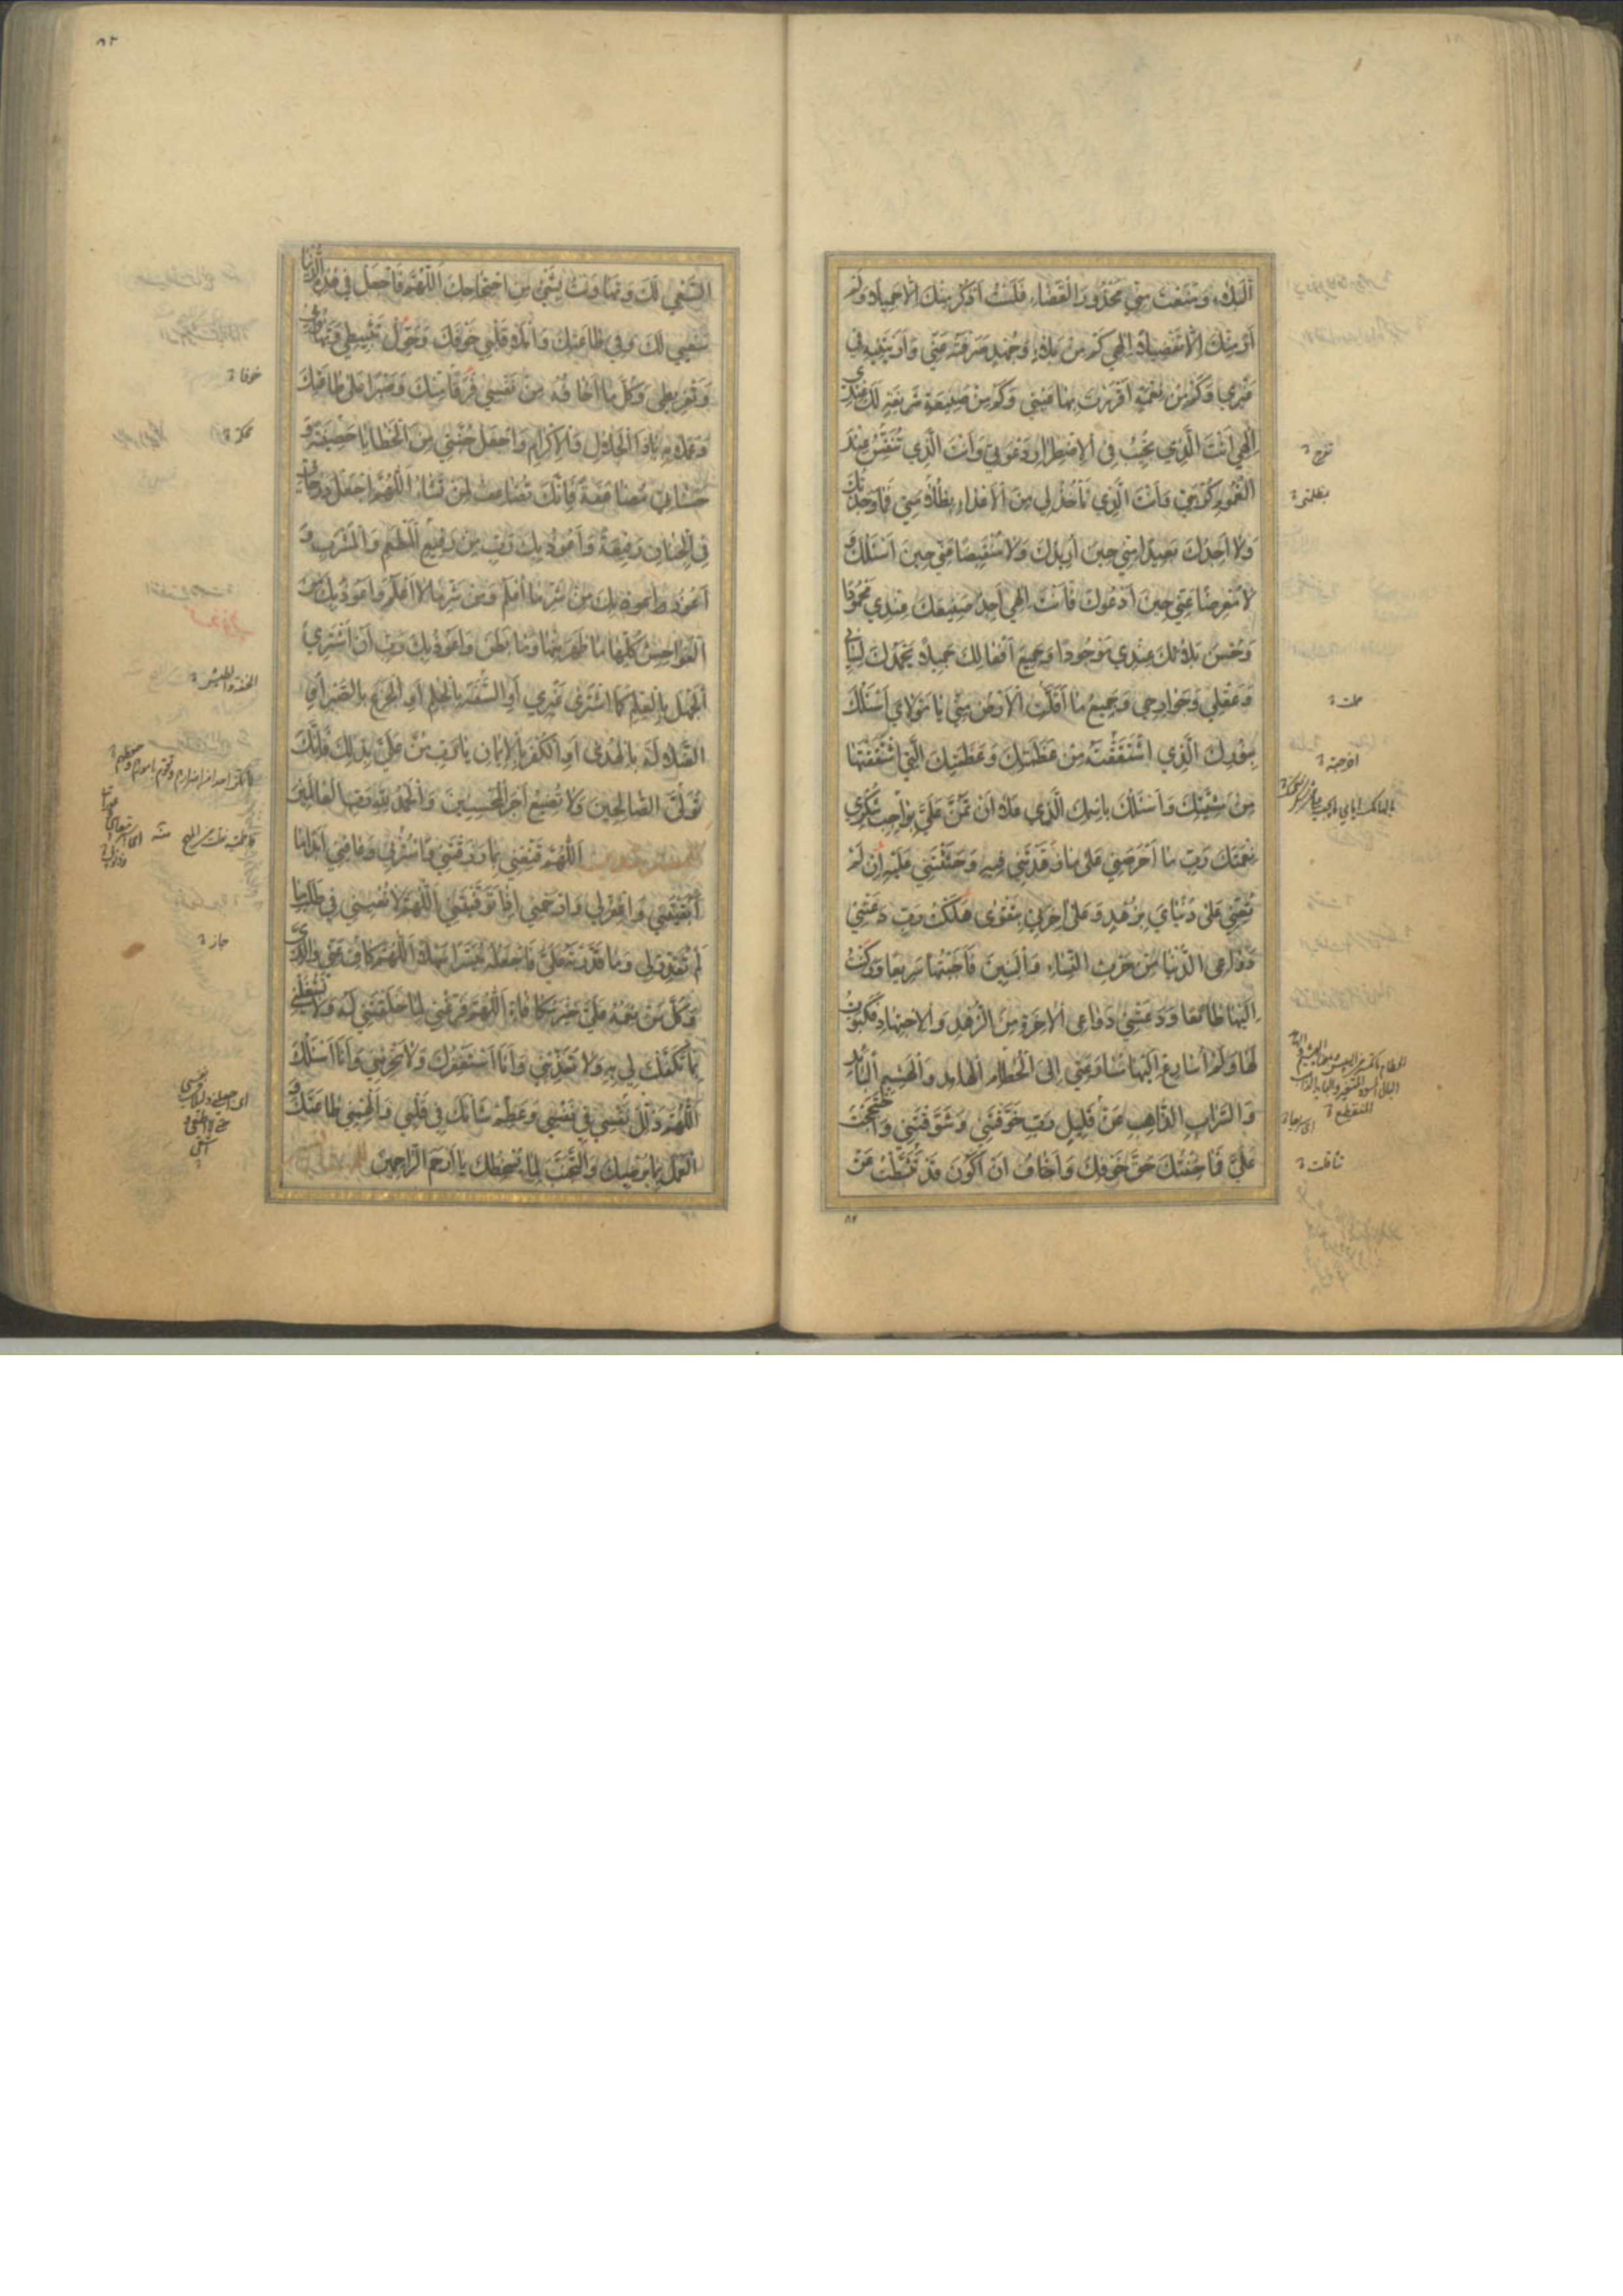 البَلاءِ وَمَنَعْتَ مِنّي مَحْذُورَ القَضاءِ فَلَسْتُ اَذْكُرُ مِنْكَ اِلّا جَميلاً وَلَمْ
اَرَ مِنْكَ اِلّا تَفْضيلاً اِلهي كَمْ مِنْ بَلاءٍ وَجُهْدٍ صَرَفْتَهُ عَنّي وَاَرَيْتَنيهِ في
غَيْري وَكَمْ مِنْ نِعْمَةٍ اَقْرَرْتَ بِها عَيْني وَكَمْ مِنْ صَنيعَةٍ شَريفَةٍ لَكَ عِنْدي
اِلهي اَنْتَ الَّذي تُجيبُ في الاِضْطِرارِ دَعْوَتي وَاَنْتَ الَّذي تُنَفِّسُ عِنْدَ
الْغُمُومِ كُرْبَتي وَاَنْتَ الَّذي تَأْخُذُ لي مِنَ الْاَعْداءِ بِظُلامَتي فَما وَجَدْتُكَ
وَلا اَجِدُكَ بَعيداً مِنّي حينَ اُريدُكَ وَلا مُنْقَبِضاً عَنّي حينَ اَسْئَلُكَ وَ
لا مُعْرِضاً عَنّي حينَ اَدْعُوكَ فَاَنْتَ اِلهي اَجِدُ صَنيعَكَ عِنْدي مَحْمُوداً
وَحُسْنَ بَلائِكَ عِنْدي مَوْجُوداً وَجَميعَ اَفْعالِكَ جَميلاً يَحْمَدُكَ لِساني
وَعَقْلي وَجَوارِحي وَجَميعُ ما اَقَلَّتِ الْاَرْضُ مِنّي يا مَوْلايَ اَسْئَلُكَ
بِنُورِكَ الَّذي اشْتَقَقْتَهُ مِنْ عَظَمَتِكَ وَعَظَمَتِكَ الَّتي اشْتَقَقْتَها
مِنْ مَشِيَّتِكَ وَاَسْئَلُكَ بِاسْمِكَ الَّذي عَلا اَنْ تَمُنَّ عَلَيَّ بِواجِبِ شُكْري
نِعْمَتَكَ رَبِّ ما اَحْرَصَني عَلى ما زَهَّدْتَني فيهِ وَحَثَثْتَني عَلَيْهِ اِنْ لَمْ
تُعِنّي عَلى دُنْيايَ بِزُهْدٍ وَعَلى اخِرَتي بِتَقْوى هَلَكْتُ رَبِّ دَعَتْني
دَواعِي الدُّنْيا مِنْ حَرْثِ النِّساءِ وَالْبَنينَ فَاَجَبْتُها سَريعاً وَرَكَنْتُ
اِلَيْها طائِعاً وَدَعَتْني دَواعِي الْاخِرَةِ مِنَ الزُّهْدِ وَالْاِجْتِهادِ فَكَبَوْتُ
لَها وَلَمْ اُسارِعْ اِلَيْها مُسارَعَتي اِلَى الْحُطامِ الْهامِدِ وَالْهَشيمِ الْبائِدِ
وَالسَّرابِ الذّاهِبِ عَنْ قَليلٍ رَبِّ خَوَّفْتَني وَشَوَّقْتَني وَاحْتَجَجْتَ
عَلَيَّ فَما خِفْتُكَ حَقَّ خَوْفِكَ وَاَخافُ اَنْ اَكُونَ قَدْ تَثَبَّطْتُ عَنْ
تفرج
بظلمتي
حملت
اخرجته
المنقطع
تثاقلت
٨٢
٨٢
السَّعْيِ لَكَ وَتَهاوَنْتُ بِشَيْءٍ مِنِ احْتِجاجِكَ اَللّهُمَّ فَاجْعَلْ في هذِهِ الدُّنْيا
سَعْيي لَكَ وَفي طاعَتِكَ وَامْلَأْ قَلْبي خَوْفَكَ وَحَوِّلْ تَثْبيطي وَتَهاوُني
وَتَفْريطي وَكُلَّ ما اَخافُهُ مِنْ نَفْسي فَرَقاً مِنْكَ وَصَبْراً عَلى طاعَتِكَ
وَعَمَلاً بِهِ يا ذَا الْجَلالِ وَالْاِكْرامِ وَاجْعَلْ جُنَّتي مِنَ الْخَطايا حَصينَةً وَ
حَسَناتي مُضاعَفَةً فَاِنَّكَ تُضاعِفُ لِمَنْ تَشاءُ اَللّهُمَّ اجْعَلْ دَرَجاتي
فِي الْجِنانِ رَفيعَةً وَاَعُوذُ بِكَ رَبِّ مِنْ رَفيعِ الْمَطْعَمِ وَالْمَشْرَبِ وَ
اَعُوذُ بِكَ مِنْ شَرِّ ما اَعْلَمُ وَمِنْ شَرِّ ما لا اَعْلَمُ وَاَعُوذُ بِكَ مِنَ
الْفَواحِشِ كُلِّها ما ظَهَرَ مِنْها وَما بَطَنَ وَاَعُوذُ بِكَ رَبِّ اَنْ اَشْتَرِيَ
الْجَهْلَ بِالْعِلْمِ كَمَا اشْتَرى غَيْري اَوِ السَّفَهَ بِالْحِلْمِ اَوِ الْجَزَعَ بِالصَّبْرِ اَوِ
الضَّلالَةَ بِالْهُدى اَوِ الْكُفْرَ بِالْايمانِ يا رَبِّ مُنَّ عَلَيَّ بِذلِكَ فَاِنَّكَ
تَوَلَّى الصّالِحينَ وَلا تُضيعُ اَجْرَ الْمُحْسِنينَ وَالْحَمْدُ لِلّهِ رَبِّ الْعالَمينَ
اَللّهُمَّ قَنِّعْني بِما رَزَقْتَني وَاسْتُرْني وَعافِني اَبَداً ما
اَبْقَيْتَني وَاغْفِرْ لي وَارْحَمْني اِذا تَوَفَّيْتَني اَللّهُمَّ لا تُعْيِني في طَلَبِ ما
لَمْ تُقَدِّرْ لي وَما قَدَّرْتَهُ عَلَيَّ فَاجْعَلْهُ مُيَسَّراً سَهْلاً اَللّهُمَّ كافِ عَنّي والِدَيَّ
وَكُلَّ مَنْ لَهُ نِعْمَةٌ عَلَيَّ خَيْرَ مُكافاةٍ اَللّهُمَّ فَرِّغْني لِما خَلَقْتَني لَهُ وَلا تَشْغَلْني
بِما تَكَفَّلْتَ لي بِهِ وَلا تُعَذِّبْني وَاَنَا اَسْتَغْفِرُكَ وَلا تَحْرِمْني وَاَنَا اَسْئَلُكَ
اَللّهُمَّ ذَلِّلْ نَفْسي في نَفْسي وَعَظِّمْ شَأْنَكَ في قَلْبي وَاَلْهِمْني طاعَتَكَ وَ
الْعَمَلَ بِما يُرْضيكَ وَالتَّجَنُّبَ لِما يُسْخِطُكَ يا اَرْحَمَ الرّاحِمينَ
خوفا
جاز